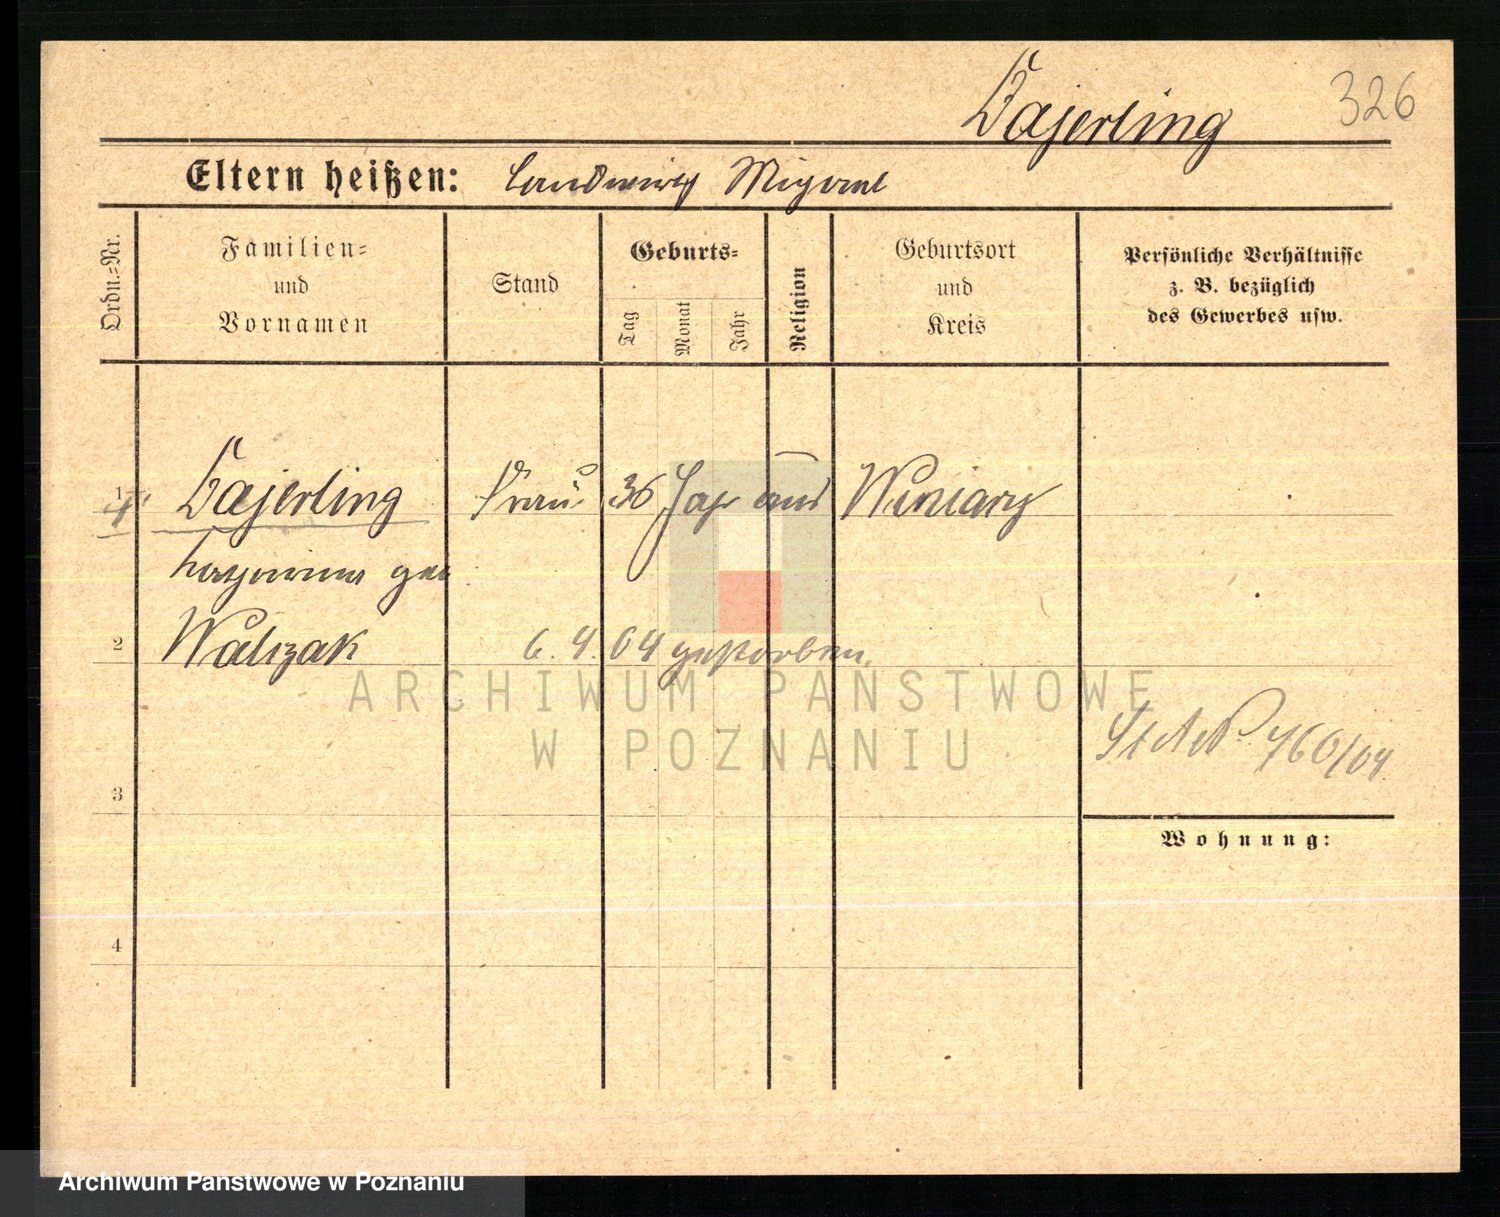 326
Bajerling
Eltern heißen: Landwirth Migowl
Ordn.=Nr.
Familien=
und
Vornamen
Stand
Geburts=
Tag
Monat
Jahr
Religion
Geburtsort
und
Kreis
Persönliche Verhältnisse
z. B. bezüglich
des Gewerbes usw.
1 Bajerling Frau 36 Jahr aus Winiary
geb
2 Walczak 6.4.04 gestorben.
ARCHIWUM PAŃSTWOWE
W POZNANIU
St A No 760/04.
3
Wohnung:
4
Archiwum Państwowe w Poznaniu